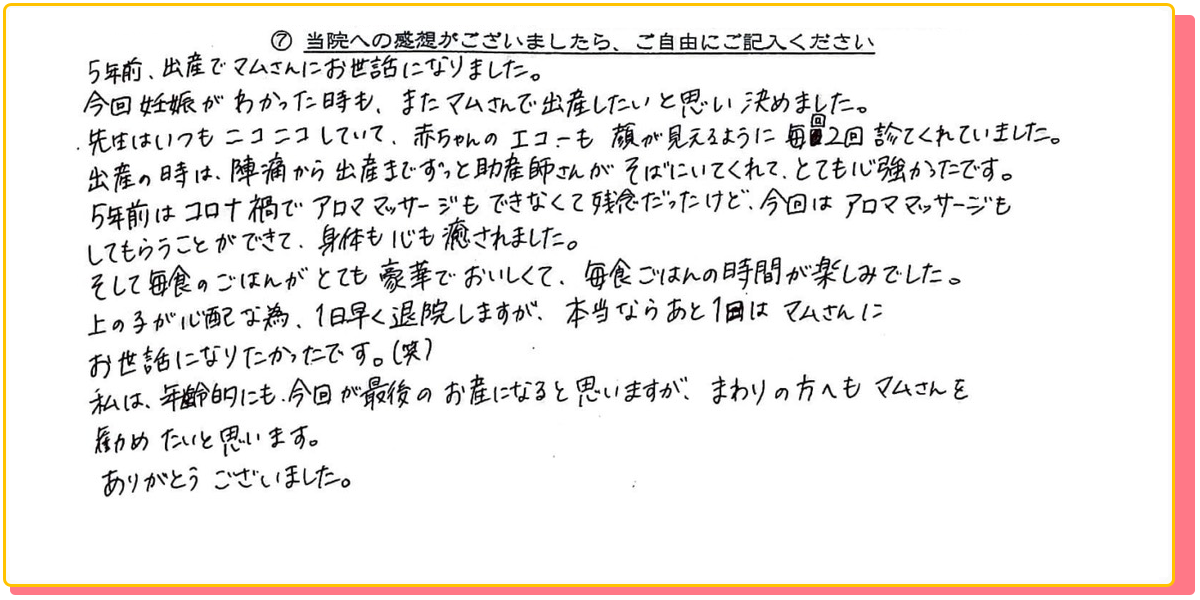 ⑦ 当院への感想がございましたら、ご自由にご記入ください
5年前、出産でマムさんにお世話になりました。
今回妊娠がわかった時も、またマムさんで出産したいと思い決めました。
先生はいつもニコニコしていて、赤ちゃんのエコーも顔が見えるように毎回2回診てくれていました。
出産の時は、陣痛から出産までずっと助産師さんがそばにいてくれて、とても心強かったです。
5年前はコロナ禍でアロママッサージもできなくて残念だったけど、今回はアロママッサージも
してもらうことができて、身体も心も癒されました。
そして毎食のごはんがとても豪華でおいしくて、毎食ごはんの時間が楽しみでした。
上の子が心配な為、1日早く退院しますが、本当ならあと1日はマムさんに
お世話になりたかったです。(笑)
私は、年齢的にも、今回が最後のお産になると思いますが、まわりの方へもマムさんを
勧めたいと思います。
ありがとうございました。